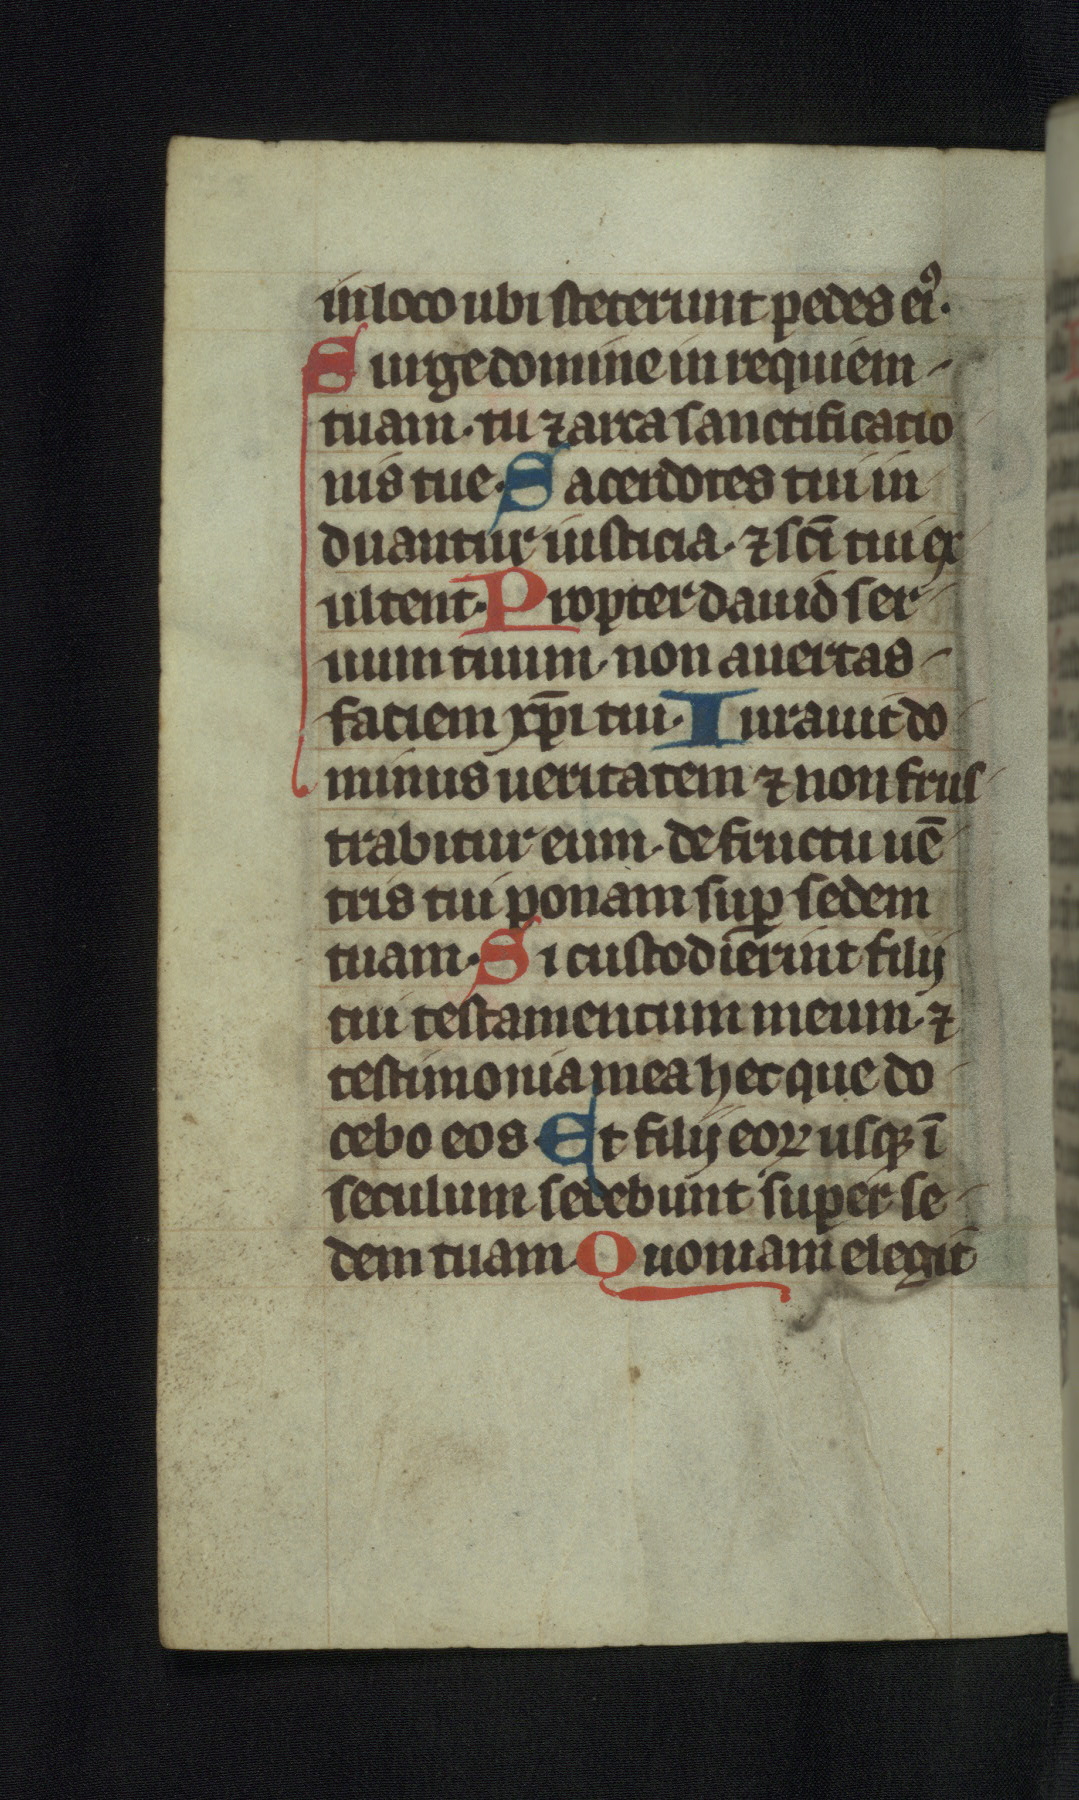 in loco ubi steterunt pedes eiꝰ.
Surge domine in requiem
tuam. tu ⁊ arca sanctificatio
nis tue. Sacerdotes tui in
duantur iusticia. ⁊ sc̄i tui ex
ultent. Propter dauid ser
uum tuum. non auertas
faciem xp̄i tui. Iurauit do
minus ueritatem ⁊ non frus
trabitur eum. de fructu uē
tris tui ponam suꝑ sedem
tuam. Si custodierint filij
tui testamentum meum. ⁊
testimonia mea hec que do
cebo eos. Et filij eoꝝ usqꝫ ī
seculum sedebunt super se
dem tuam. Quoniam elegit